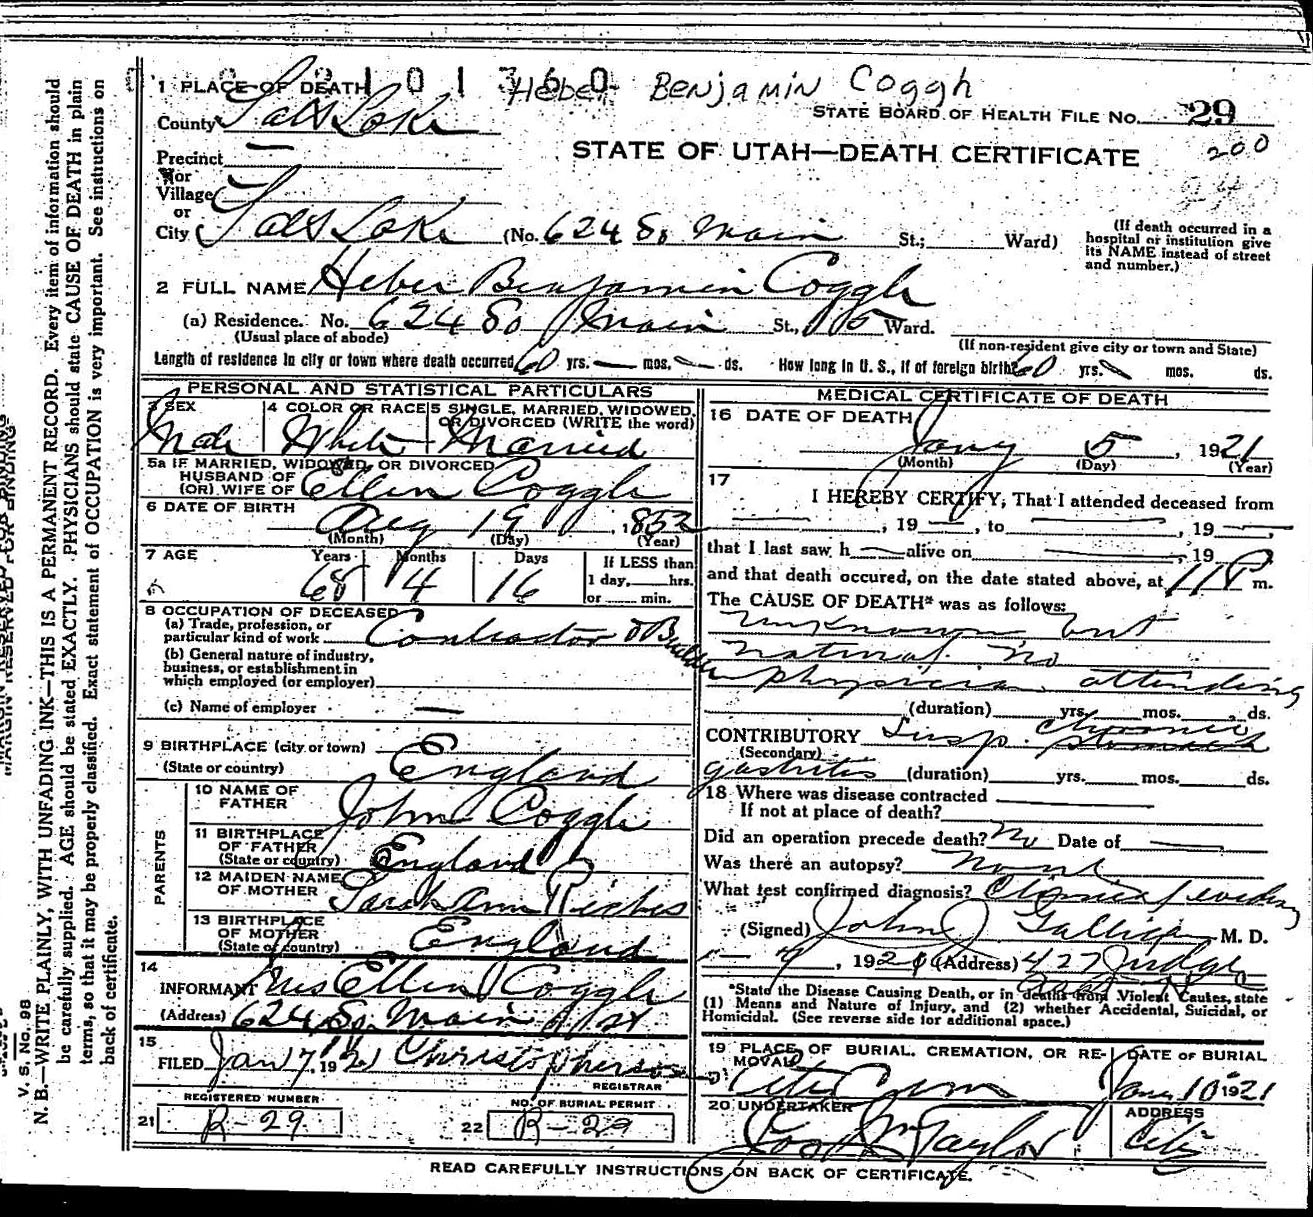 2101360
Heber Benjamin Coggle
1 PLACE OF DEATH
County Salt Lake
STATE BOARD OF HEALTH FILE NO. 29
200
STATE OF UTAH—DEATH CERTIFICATE
Precinct —
or
Village —
or
City Salt Lake (No. 624 So Main St.; Ward) (If death occurred in a hospital or institution give its NAME instead of street and number.)
2 FULL NAME Heber Benjamin Coggle
(a) Residence. No. 624 So Main St., 5 Ward.
(Usual place of abode) (If non-resident give city or town and State)
Length of residence in city or town where death occurred 60 yrs. — mos. — ds. How long in U. S., if of foreign birth? 60 yrs. mos. ds.
PERSONAL AND STATISTICAL PARTICULARS
3 SEX Male
4 COLOR OR RACE White
5 SINGLE, MARRIED, WIDOWED, OR DIVORCED (WRITE the word) Married
5a IF MARRIED, WIDOWED, OR DIVORCED
HUSBAND OF
(OR) WIFE OF Ellen Coggle
6 DATE OF BIRTH
Aug 19, 1852
(Month) (Day) (Year)
7 AGE Years Months Days If LESS than
68 4 16 1 day, hrs.
or min.
8 OCCUPATION OF DECEASED
(a) Trade, profession, or
particular kind of work Contractor & Builder
(b) General nature of industry,
business, or establishment in
which employed (or employer)
(c) Name of employer —
9 BIRTHPLACE (city or town)
(State or country) England
PARENTS
10 NAME OF
FATHER John Coggle
11 BIRTHPLACE
OF FATHER
(State or country) England
12 MAIDEN NAME
OF MOTHER Sarah Ann Riches
13 BIRTHPLACE
OF MOTHER
(State or country) England
14
INFORMANT Mrs Ellen Coggle
(Address) 624 So. Main St
15
FILED Jan 7, 1921 Christopherson
REGISTRAR
REGISTERED NUMBER
21 R-29
NO. OF BURIAL PERMIT
22 R-29
MEDICAL CERTIFICATE OF DEATH
16 DATE OF DEATH
Jany 5, 1921
(Month) (Day) (Year)
17
I HEREBY CERTIFY, That I attended deceased from
—, 19 —, to —, 19 —,
that I last saw h — alive on —, 19
and that death occured, on the date stated above, at 11 P m.
The CAUSE OF DEATH* was as follows:
Unknown but
natural no
physician attending
(duration) yrs. mos. ds.
CONTRIBUTORY Susp. Chronic stomach
(Secondary)
gastritis (duration) yrs. mos. ds.
18 Where was disease contracted
If not at place of death?
Did an operation precede death? No Date of —
Was there an autopsy? None
What test confirmed diagnosis? Clinical
(Signed) John J Galligan M. D.
7, 192 (Address) 427 Judge
*State the Disease Causing Death, or in deaths from Violent Causes, state
(1) Means and Nature of Injury, and (2) whether Accidental, Suicidal, or
Homicidal. (See reverse side for additional space.)
19 PLACE OF BURIAL, CREMATION, OR REMOVAL
DATE OF BURIAL
City Cem Jany 10 1921
20 UNDERTAKER ADDRESS
Jos Wm Taylor City
READ CAREFULLY INSTRUCTIONS ON BACK OF CERTIFICATE.
MARGIN RESERVED FOR BINDING
V. S. No. 98
N. B.—WRITE PLAINLY, WITH UNFADING INK—THIS IS A PERMANENT RECORD. Every item of information should
be carefully supplied. AGE should be stated EXACTLY. PHYSICIANS should state CAUSE OF DEATH in plain
terms, so that it may be properly classified. Exact statement of OCCUPATION is very important. See instructions on
back of certificate.